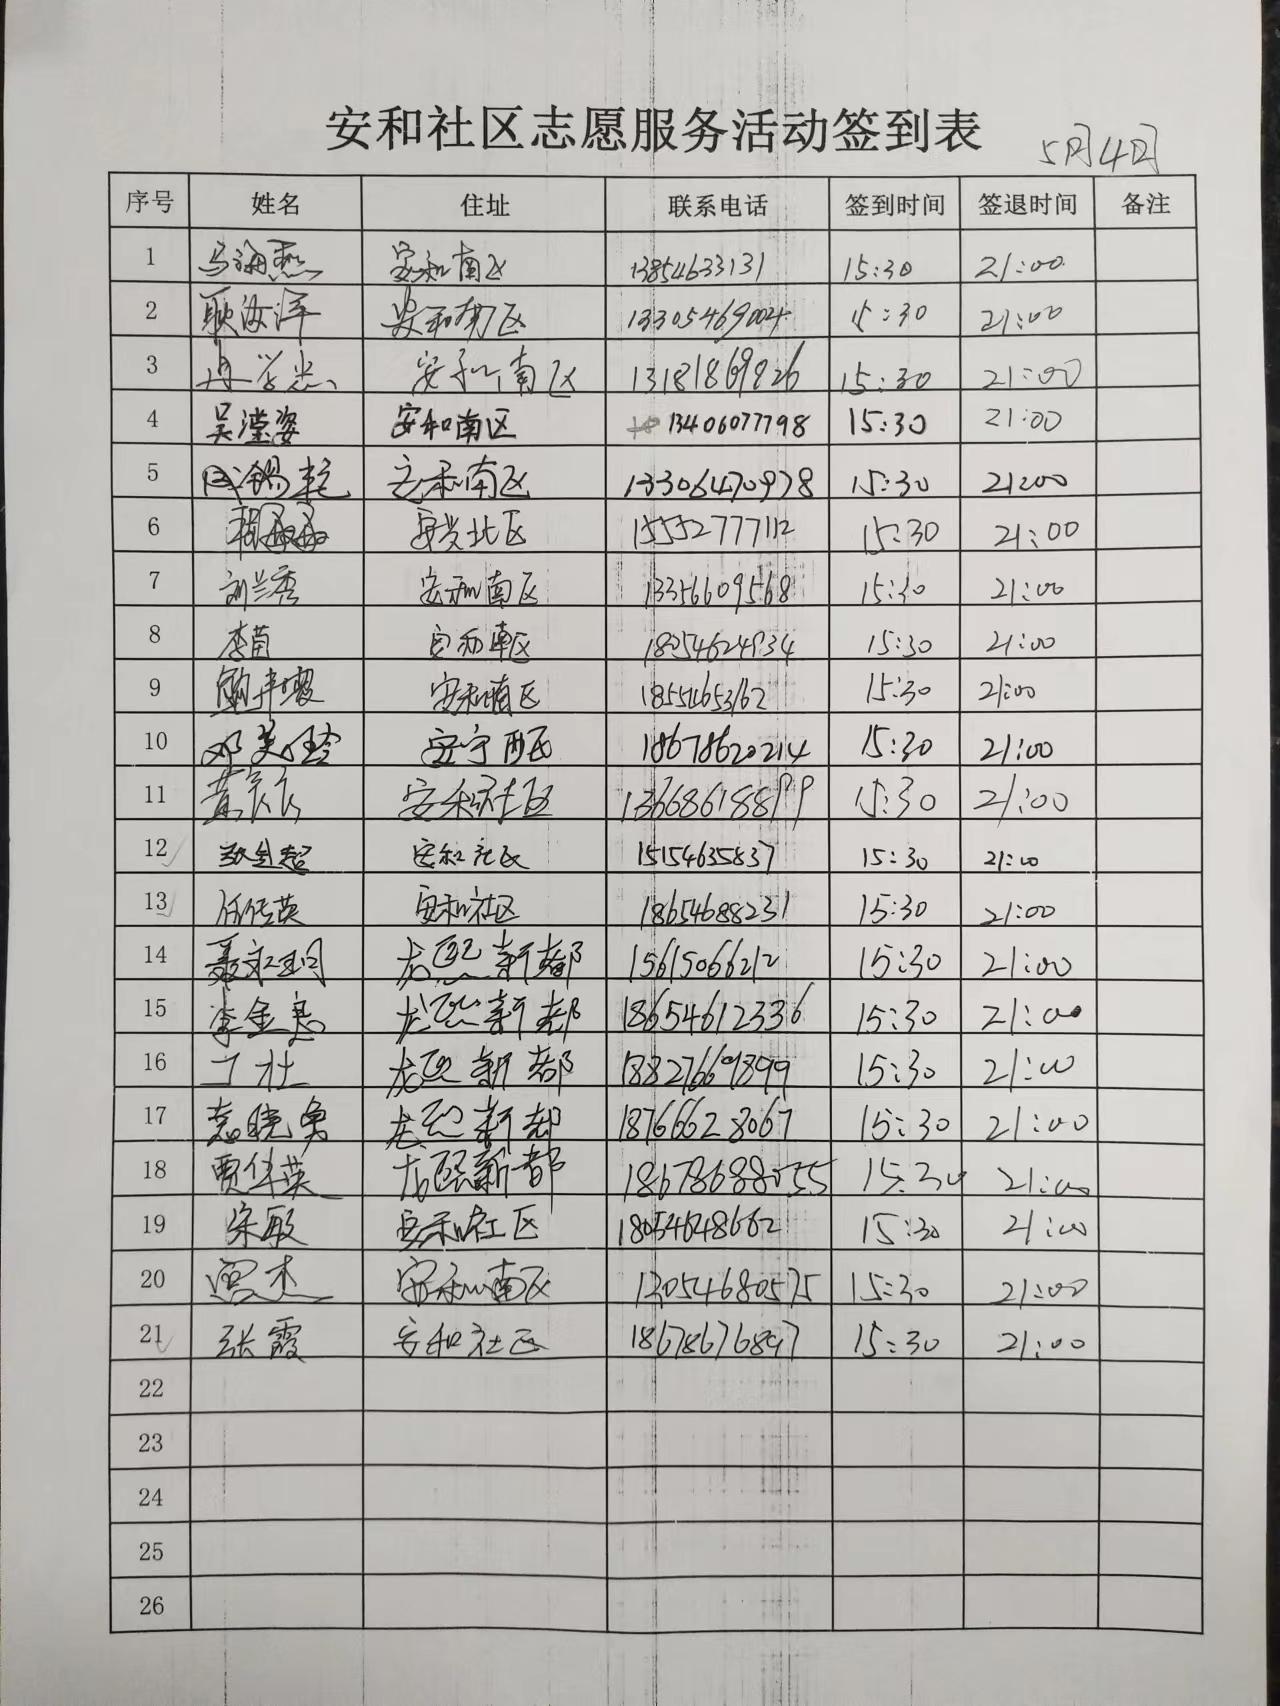 安和社区志愿服务活动签到表
5月4日
序号 姓名 住址 联系电话 签到时间 签退时间 备注
1 马海燕 安和南区 13854633131 15:30 21:00
2 耿海洋 安和南区 13305469004 15:30 21:00
3 安和南区 13181869826 15:30 21:00
4 吴滢姿 安和南区 13406077798 15:30 21:00
5 安和南区 13306470978 15:30 21:00
6 安兴北区 15552777112 15:30 21:00
7 刘兰秀 安和南区 13356609568 15:30 21:00
8 李苗 安和南区 18054624934 15:30 21:00
9 安和南区 18554653162 15:30 21:00
10 邓美玲 安宁西区 18678620214 15:30 21:00
11 安和社区 13668618899 15:30 21:00
12 安和社区 15154635837 15:30 21:00
13 任传英 安和社区 18654688231 15:30 21:00
14 龙熙新都 15615066212 15:30 21:00
15 李金亮 龙熙新都 18654612336 15:30 21:00
16 丁壮 龙熙新都 18827669899 15:30 21:00
17 袁晓勇 龙熙新都 18766628067 15:30 21:00
18 贾传英 龙熙新都 18678688055 15:30 21:00
19 宋敏 安和社区 18054648662 15:30 21:00
20 安和南区 13054680575 15:30 21:00
21 张霞 安和社区 18678676897 15:30 21:00
22
23
24
25
26